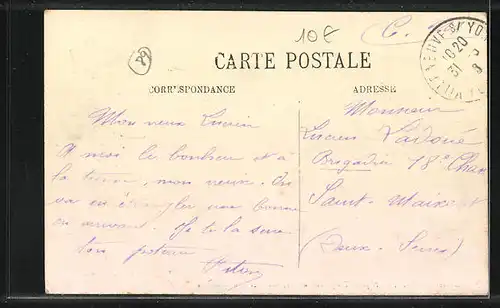 10€
C.
CARTE POSTALE
CORRESPONDANCE
ADRESSE
10 20
31
Mon vieux Lucien
A moi le bonheur et à
la tienne, mon vieux. On
va en étrangler une bonne
en arrivant. Je te la serre
ton poteau
Monsieur
Lucien Vadoué
Brigadier 18e Chas
Saint-Maixent
(Deux-Sèvres)